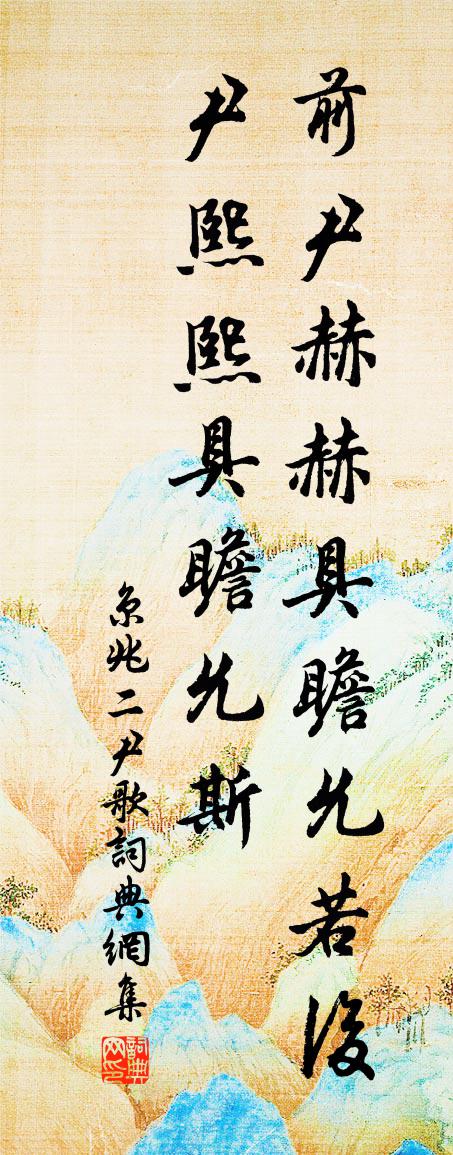 前尹赫赫具瞻允若後
尹熙熙具瞻允斯
京兆二尹歌詞典網集
詞典網印